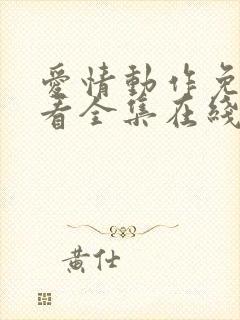 愛情動作免
看全集在綫
黄仕